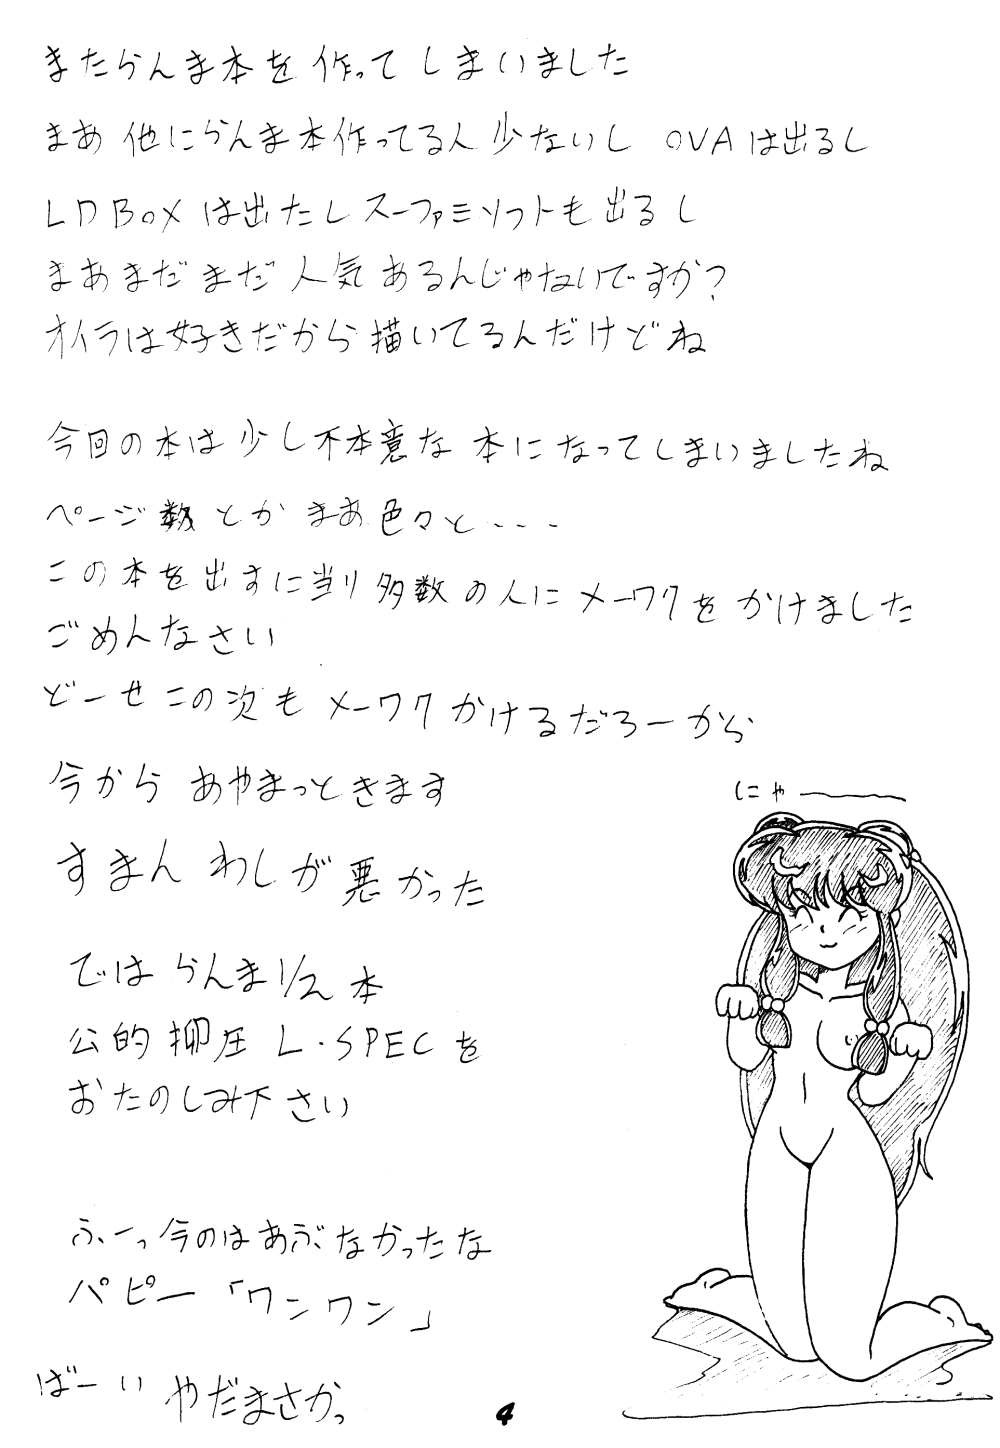 またらんま本を作ってしまいました
まあ他にらんま本作ってる人少ないし OVAは出るし
LD BOXは出たしスーファミソフトも出るし
まあまだまだ人気あるんじゃないですか?
オイラは好きだから描いてるんだけどね
今回の本は少し不本意な本になってしまいましたね
ページ数とかまあ色々と・・・
この本を出すに当り多数の人にメーワクをかけました
ごめんなさい
どーせこの次もメーワクかけるだろーから
今からあやまっときます
すまん わしが悪かった
にゃー
では らんま1/2本
公的抑圧 L・SPECを
おたのしみ下さい
ふーっ今のはあぶなかったな
パピー「ワンワン」
ばーい やだまさかっ
4